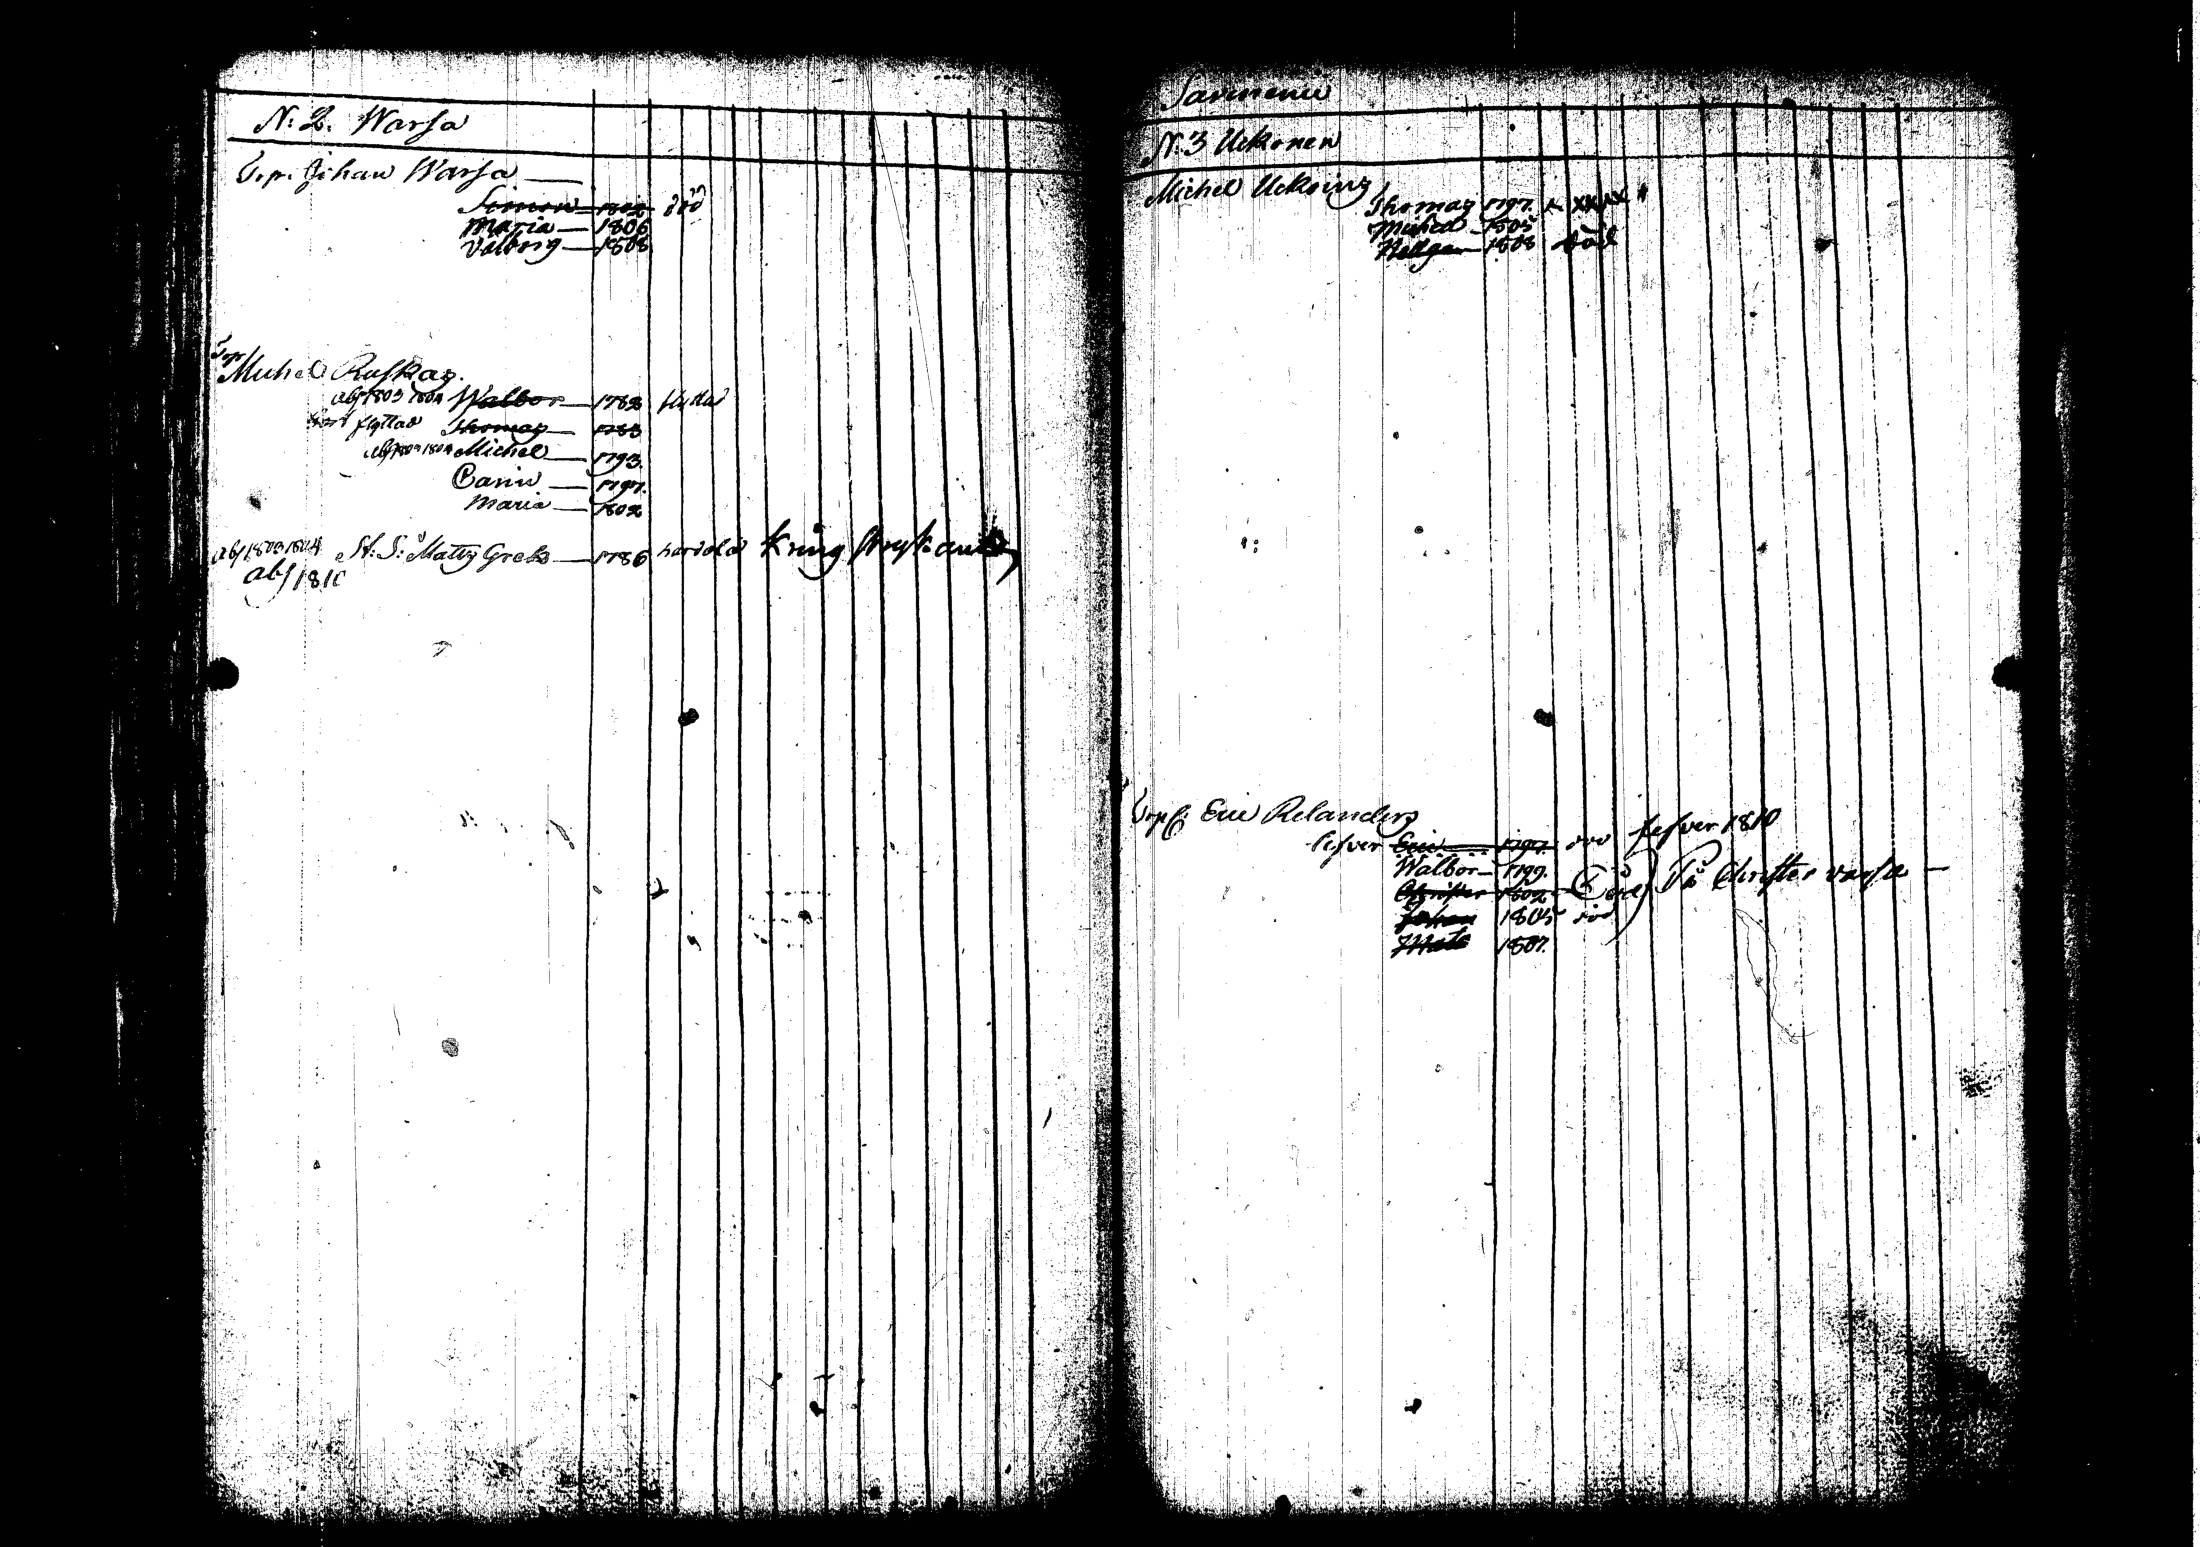 N: 2. Warsa
Trp: Johan Warsa —
Simon — 1802 död
Maria — 1806
Valborg — 1808
Trp Michel Ruskas.
abs 1803 1804 Walbor — 1782 flyttad
flyttad Thomas — 1783
abs 1803 1804 Michel — 1793.
Carin — 1797.
Maria — 1802
abs 1803 1804 St: S: Matts Grels — 1786 kring strykande
abs 1810
Sarmenie
N: 3 Uckonen
Michel Uckoins
Thomas 1797.
Michel 1805
Hellga — 1808 död
Trp Eric Relanders
lefver Eric — 1797. död lefver 1810
Walbor — 1799.
Christer 1802 — Död På Christer varsa —
Johan 1805 död
Mats 1807.